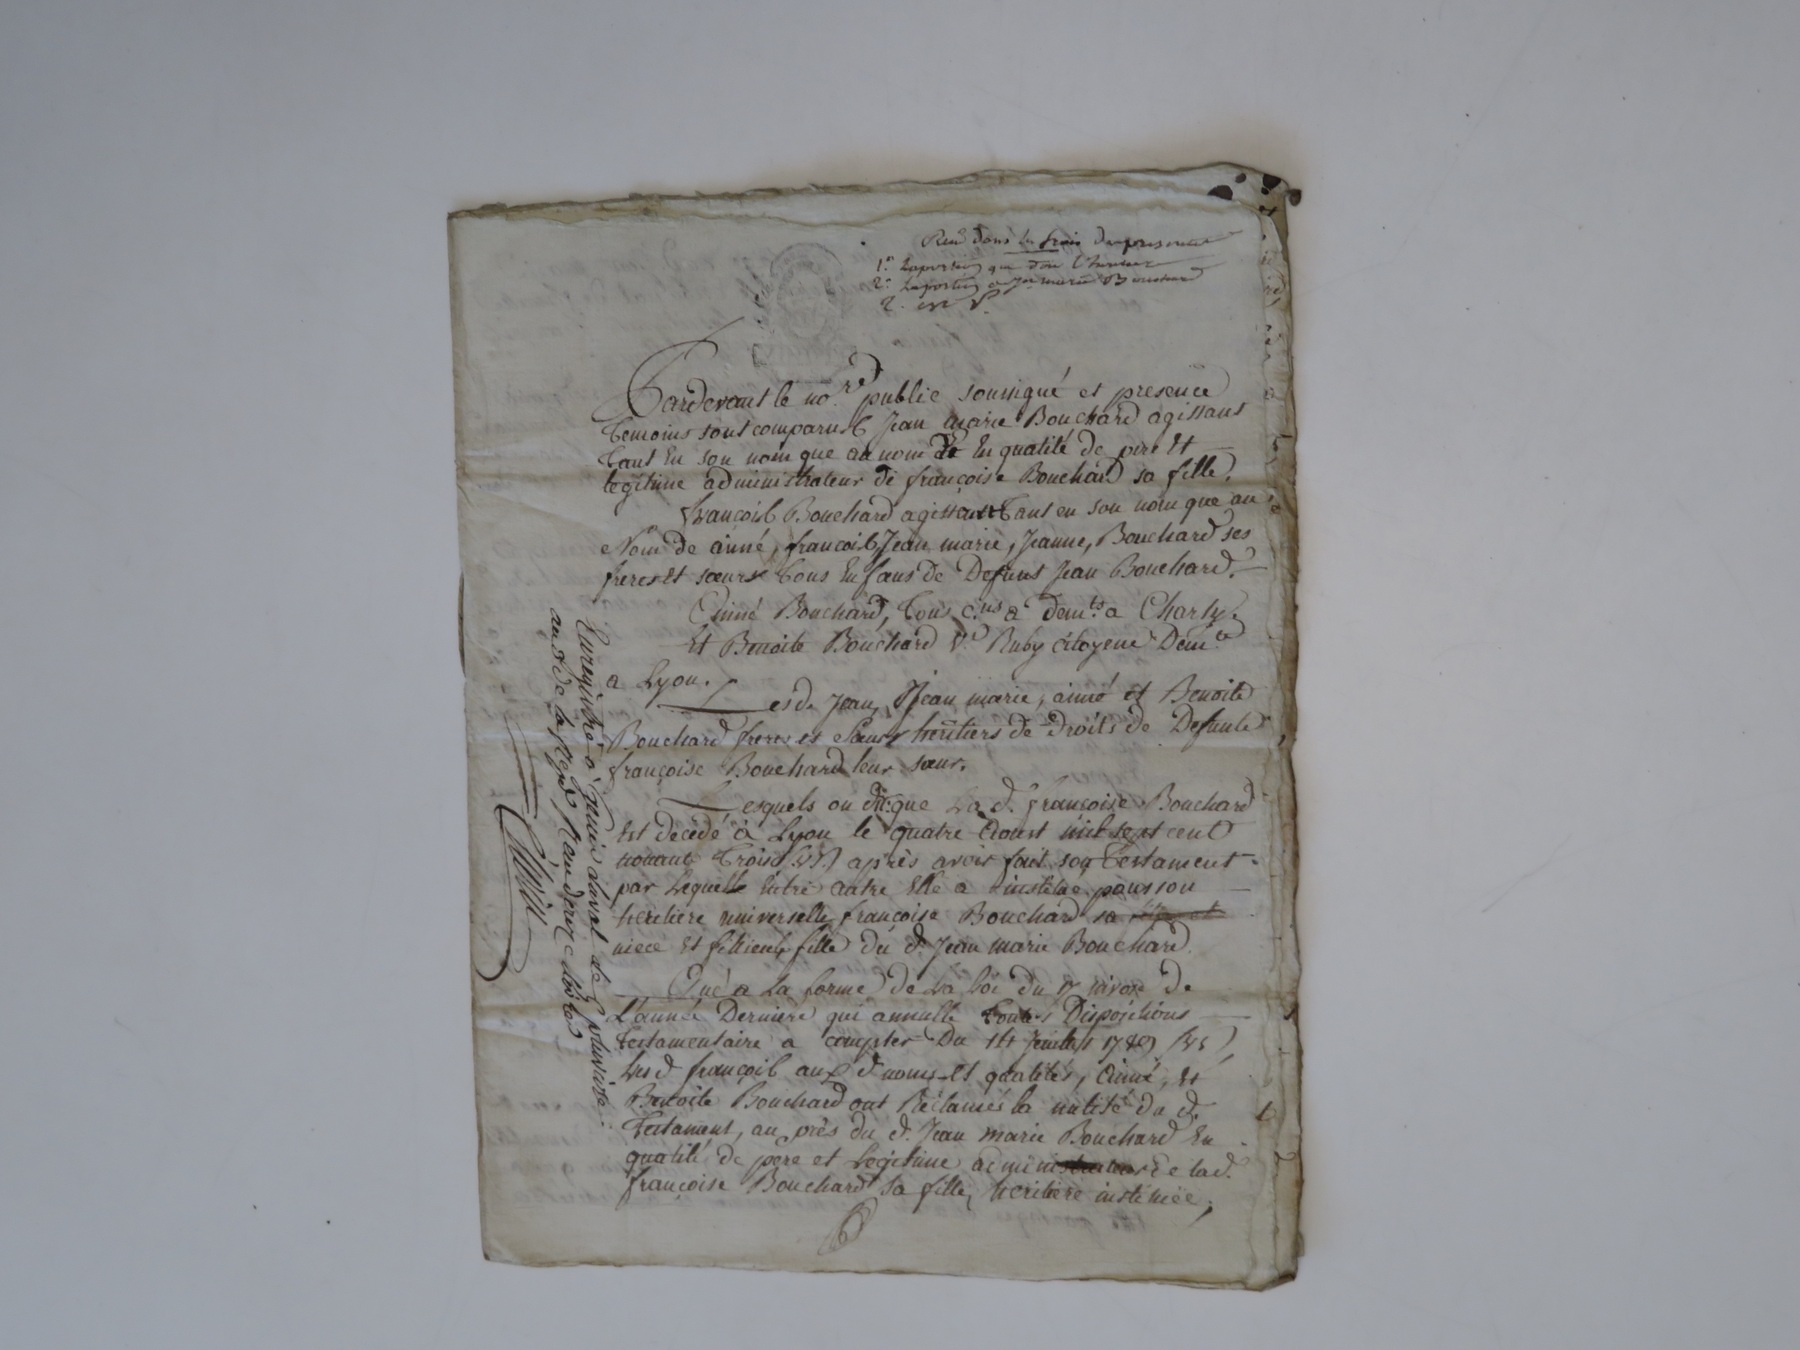 1.º
2.º La portion a Jn marie Bouchard
Pardevant le no.re public soussigné et presence
Temoins sont comparus Jean marie Bouchard agissant
tant En son nom que au nom de En qualité de pere Et
legitime administrateur de françoise Bouchard sa fille,
françois Bouchard agissant tant en son nom que au
Nom de aimé, françois, Jean marie, Jeanne, Bouchard ses
freres Et sœurs tous Enfans de Defunt Jean Bouchard.
Aimé Bouchard, tous c.ns a dem.ts a Charly,
Et Benoite Bouchard V.e Ruby citoyene Dem.te
a Lyon.
Lesd. Jean, Jean marie, aimé et Benoite
Bouchard freres et sœurs heritiers de droits de Defunte
françoise Bouchard leur sœur.
Lesquels on dit que La d. françoise Bouchard
Est decedé à Lyon le quatre Aoust mil sept cent
nonante Trois après avoir fait son Testament
par Lequelle Entre autre Elle a institue pour son
heritiere universelle françoise Bouchard sa
niece Et fillieule fille du d. Jean marie Bouchard.
Que a La forme de La loi du 17 nivose de
L'année Derniere qui annulle toutes Dispositions
testamentaire a compter Du 14 Juillet 1789
Les d françois aux d noms et qualités, Aimé, Et
Benoite Bouchard ont Réclamés la nulité du d.
Testament, au près du d. Jean marie Bouchard En
qualité de pere et Legitime administrateur de lad.
françoise Bouchard sa fille, heritiere instituée;
Enregistré à Genis Laval le